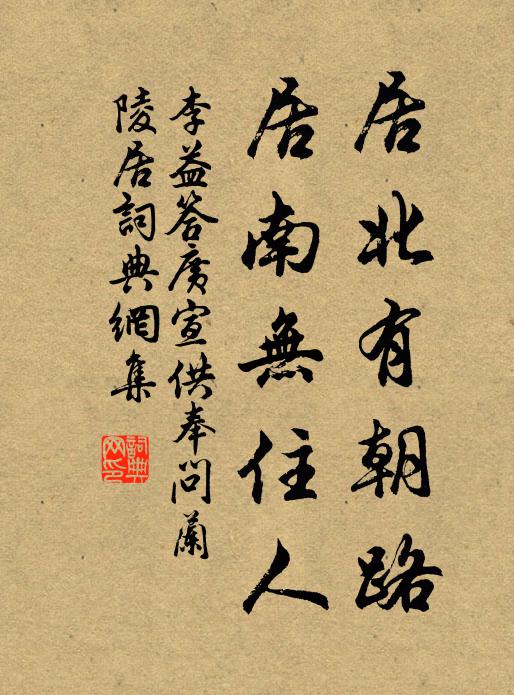 居北有朝路
居南無住人
李益答廣宣供奉問蘭
陵居詞典網集
詞典
网印